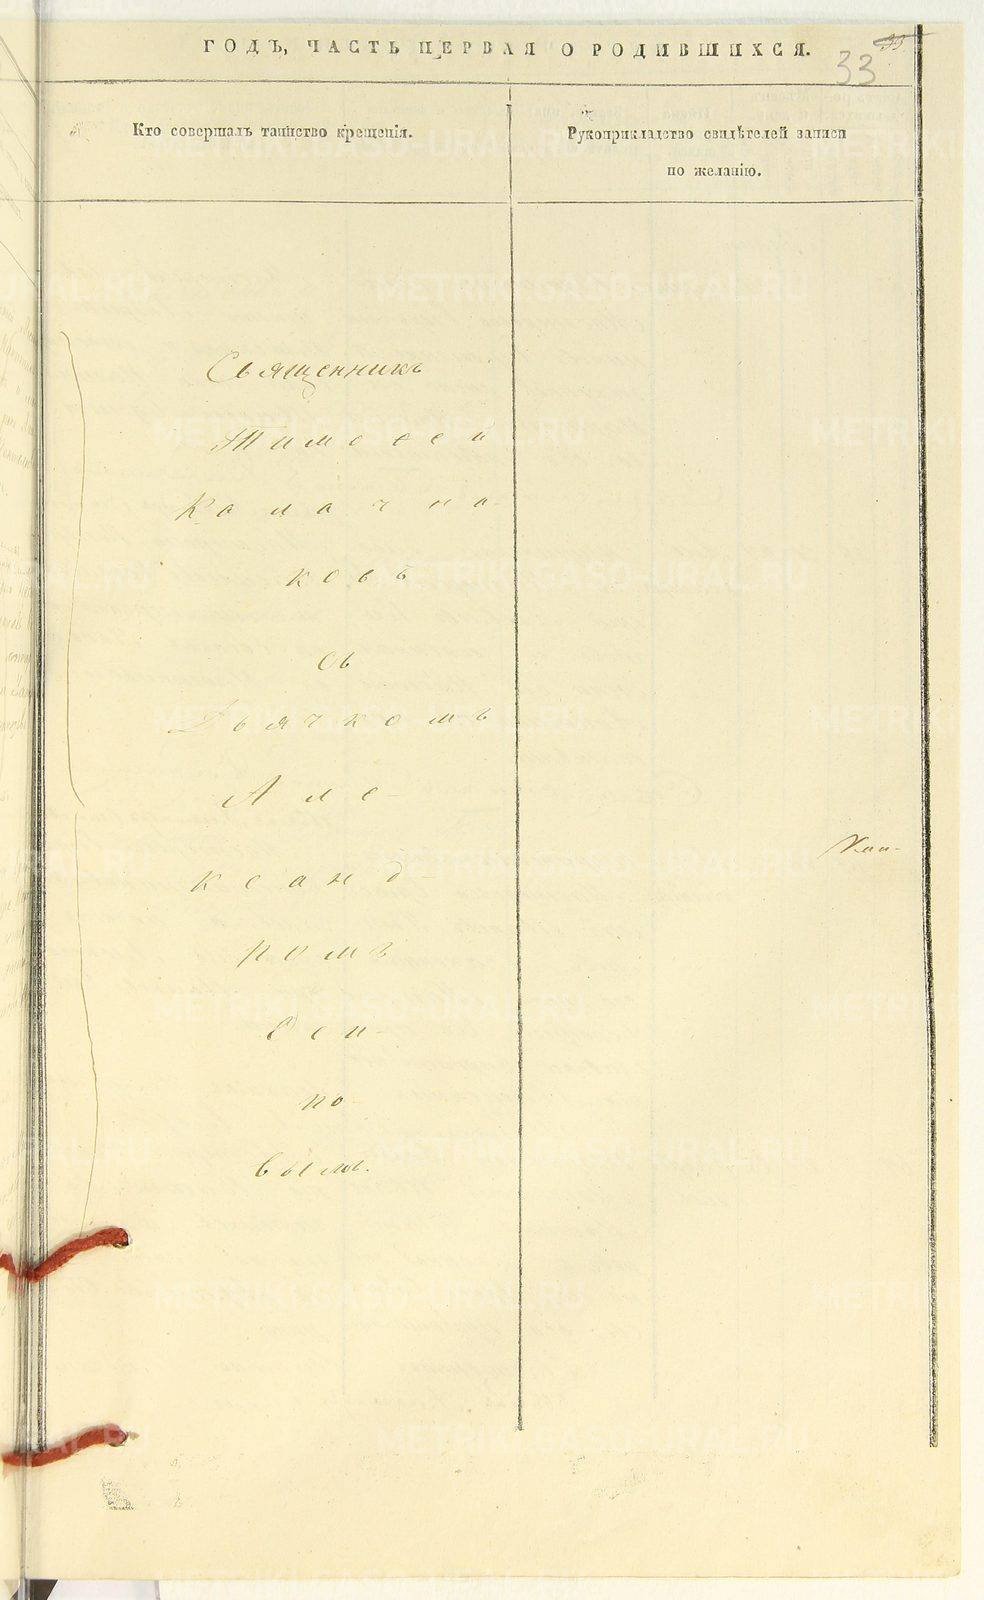 ГОДЪ, ЧАСТЬ ПЕРВАЯ О РОДИВШИХСЯ.
33
Кто совершалъ таинство крещенія.
Рукоприкладство свидѣтелей записи
по желанію.
Священникъ
Тимофей
Калачни-
ковъ
съ
Дьячкомъ
Але-
ксанд-
ромъ
по-
вымъ.
METRIKI.GASO-URAL.RU